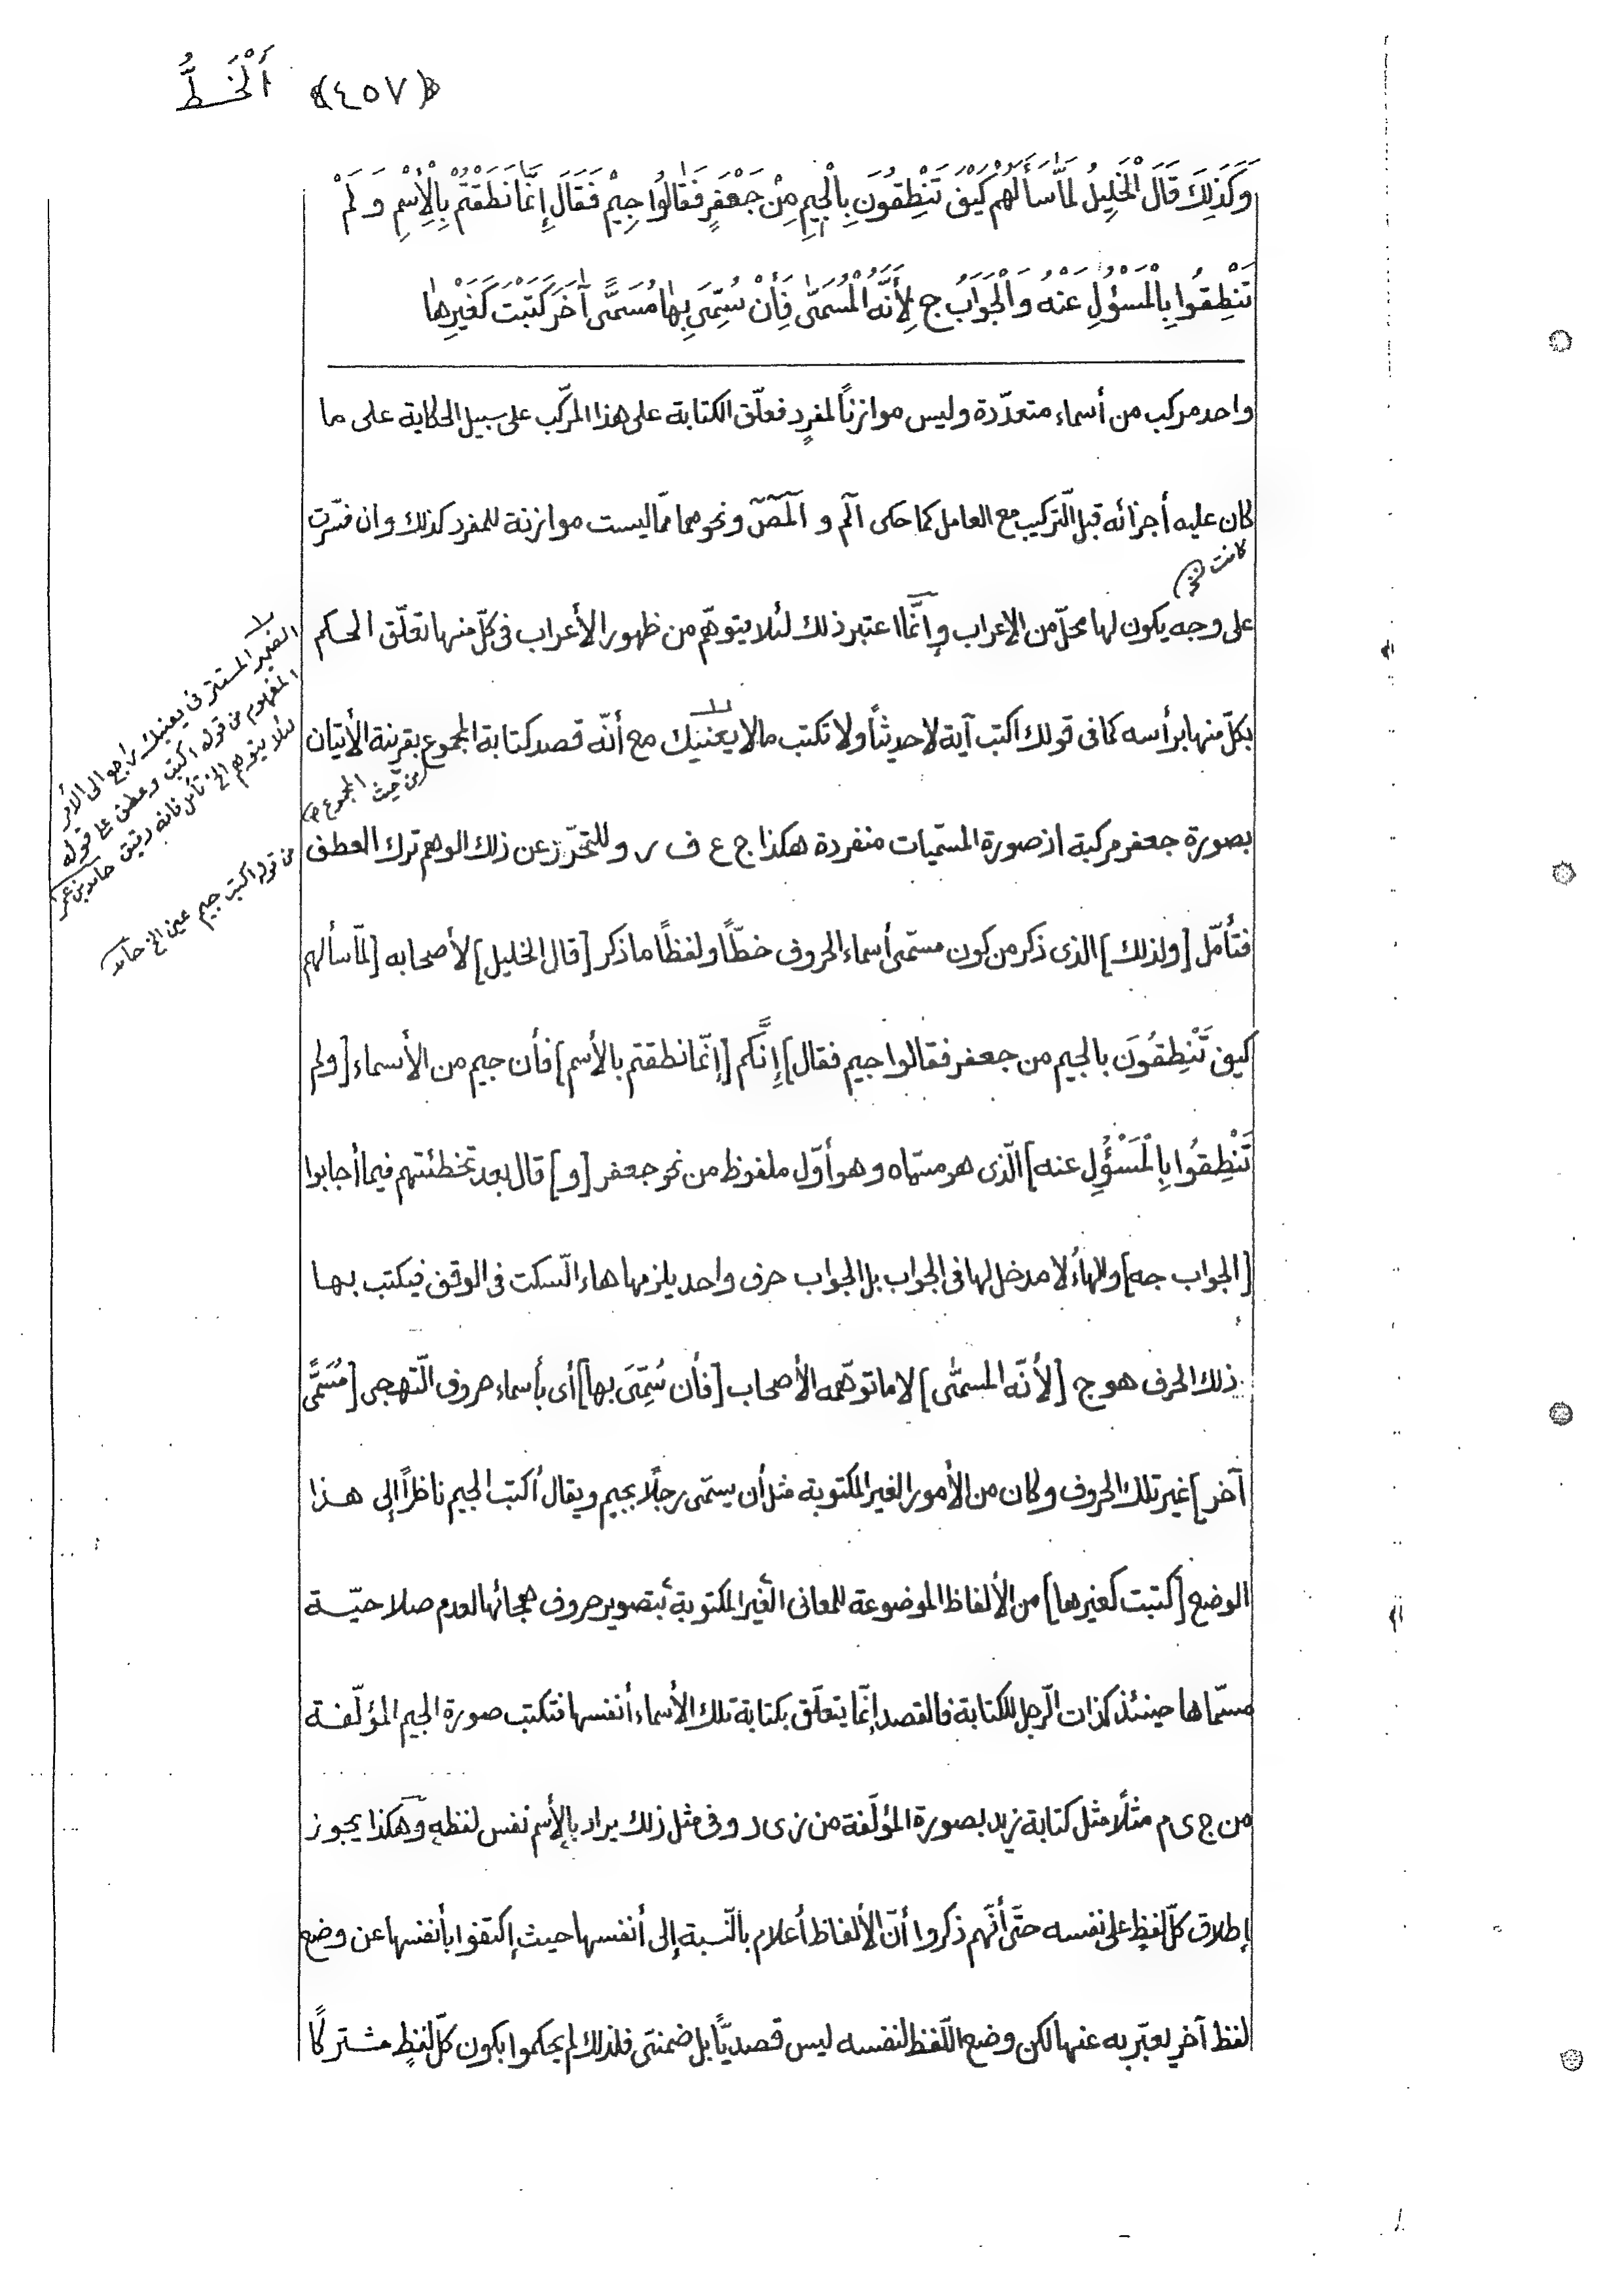 ﴿٤٥٧﴾ اَلْخَطُّ
وَكَذٰلِكَ قَالَ الْخَلِيلُ لَمَّا سَأَلَهُمْ كَيْفَ تَنْطِقُونَ بِالْجِيمِ مِنْ جَعْفَرٍ فَقَالُوا جِيمْ فَقَالَ إِنَّمَا نَطَقْتُمْ بِالْإِسْمِ وَ لَمْ
تَنْطِقُوا بِالْمَسْؤُلِ عَنْهُ وَالْجَوَابُ ج لِأَنَّهُ الْمُسَمّٰى فَأِنْ سُمِّىَ بِهٰا مُسَمًّى آخَرَ كَتَبْتَ كَغَيْرِهٰا
واحد مركب من أسماء متعدّدة وليس موازنًا لمفردٍ فعلّق الكتابة على هذا المركّب على سبيل الحكاية على ما
كان عليه أجزائه قبل التّركيب مع العامل كما حكى آلم و آلمص ونحوهما ممّا ليست موازنة للمفرد كذلك وان فسّرت
كانت نخ
على وجه يكون لها محلّ من الإعراب وإنّما اعتبر ذلك لئلا يتوهّم من ظهور الأعراب فى كلّ منها تعلّق الحكم
بكلّ منها برأسه كما فى قولك اكتب آية لا حديثًا ولا تكتب ما لا يعنيك مع أنّه قصد كتابة المجموع بقرينة الأتيان
من حيث المجموع
بصورة جعفر مركبة اذ صورة المسمّيات منفردة هكذا ج ع ف ر وللتّحرّز عن ذلك الوهم ترك العطف
فتأمّل [ولذلك] الذى ذكر من كون مسمّى أسماء الحروف خطّاً ولفظاً ما ذكر [قال الخليل] لأصحابه [لمّا سألهم
كيف تَنْطِقُونَ بالجيم من جعفر فقالوا جيم فقال] إِنَّكم [إنّما نطقتم بالأسم] فأن جيم من الأسماء [ولم
تَنْطِقُوا بِالْمَسْؤُلِ عنه] الّذى هو مسمّاه وهو أوّل ملفوظ من نحو جعفر [و] قال بعد تخطئتهم فيما أجابوا
[الجواب جه] والهاء لا مدخل لها فى الجواب بل الجواب حرف واحد يلزمها هاء السّكت فى الوقف فيكتب بها
ذلك الحرف هو ج [لأنّه المسمّٰى] لا ما توهّمه الأصحاب [فأن سُمِّىَ بها] أى بأسماء حروف التّهجى [مُسَمًّى
آخر] غير تلك الحروف وكان من الأمور الغير المكتوبة مثل أن يسمّى رجلًا بجيم ويقال أكتب الجيم ناظراً إلى هذا
الوضع [كتبت كغيرها] من الألفاظ الموضوعة للمعانى الغير المكتوبة بتصوير حروف هجائها لعدم صلاحيّة
مسمّاها حينئذ كذات الرّجل للكتابة فالقصد إنّما يتعلّق بكتابة تلك الأسماء أنفسها فتكتب صورة الجيم المؤلّفة
من ج ى م مثلًا مثل كتابة زيد بصورة المؤلّفة من ز ى د وفى مثل ذلك يراد بالإسم نفس لفظهِ وهكذا يجوز
إطلاق كلّ لفظٍ على نفسه حتّى أنّهم ذكروا أنّ الألفاظ أعلام بالنّسبة إلى أنفسها حيث إكتفوا بأنفسها عن وضع
لفظ آخر يعبّر به عنها لكن وضع اللّفظ لنفسه ليس قصديّاً بل ضمنىّ فلذلك لم يحكموا بكون كلّ لفظٍ مشتركًا
الضمير المستتر فى يعنيك راجع الى الأمر
المفهوم من قوله اكتب وعطف على قوله
لئلا يتوهم الخ تأمل فانه دقيق
من قوله اكتب جيم عين الخ